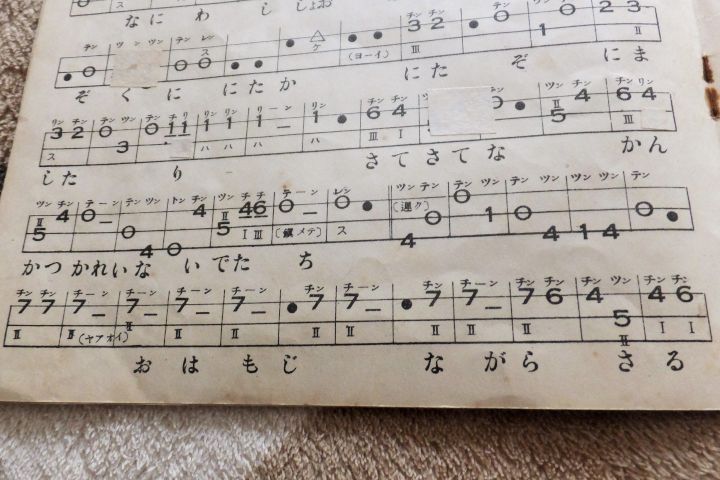 なにわ し しょお
テン ツン ツン テン レン チン チン テン
● 0 0 0 ● ● ● ● ● 3 2 ● 0 0 1 0 2 3
ス ケ (ヨーイ) Ⅲ Ⅱ
ぞくににたか にた ぞ にま
リン チン テン ツン テン チリ リン リン リーン リン チン チン ツン チン チン リン
3 2 0 3 0 1 1 1 1 1 ー 1 ● 6 4 0 ● 5 4 6 4
ス ハ ハ ハ Ⅲ Ⅰ Ⅱ Ⅲ
した り さてさてな かん
ツン チン テーン テン ツン トン チン ツン チチ テーン レン ツン テン テン ツン テン ツン ツン ツン テン
5 4 0 ー 0 4 0 4 5 4 6 0 ー 0 ● 4 0 0 1 0 4 1 4 0 ●
Ⅱ Ⅱ Ⅰ Ⅲ (鎮メテ) ス (遅ク)
かつかれいな いでた ち
チン チン チーン チーン チーン チーン チン チーン チン チーン チン チン チン ツン チン チン
7 7 7 ー 7 ー 7 ー 7 ー ● 7 7 ー ● 7 7 ー 7 6 4 5 4 6
Ⅱ Ⅱ (ヤアオイ) Ⅱ Ⅱ Ⅱ Ⅱ Ⅱ Ⅱ Ⅱ Ⅱ Ⅱ Ⅰ Ⅰ
おはもじ ながら さる